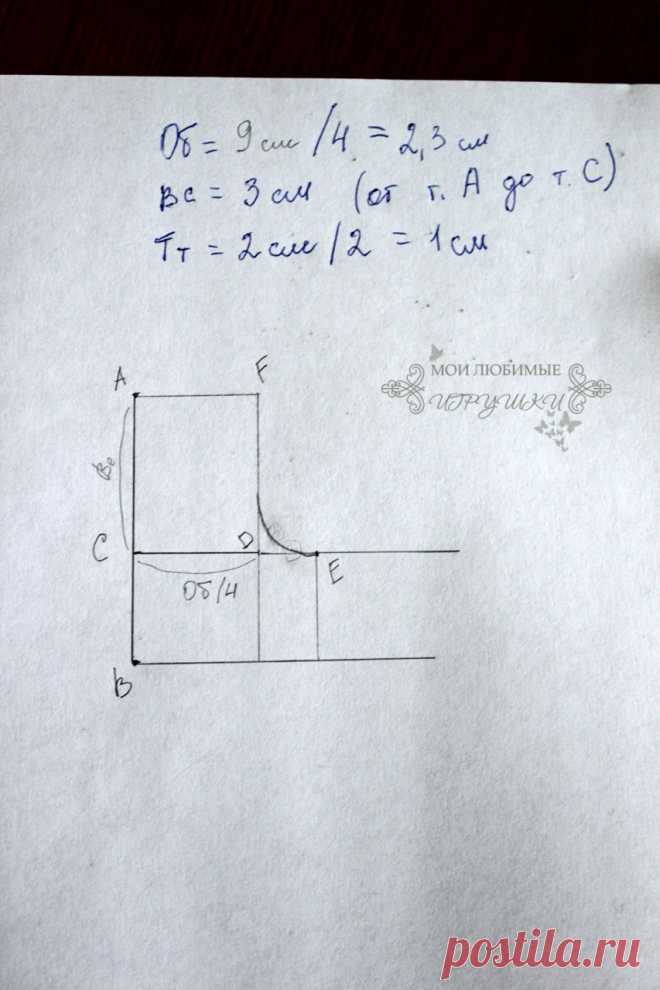 Об = 9 см / 4 = 2,3 см
Вс = 3 см (от т. А до т. С)
Тт = 2 см / 2 = 1 см
МОИ ЛЮБИМЫЕ
ИГРУШКИ
A F
Вс
C D E
Об/4
B
postila.ru